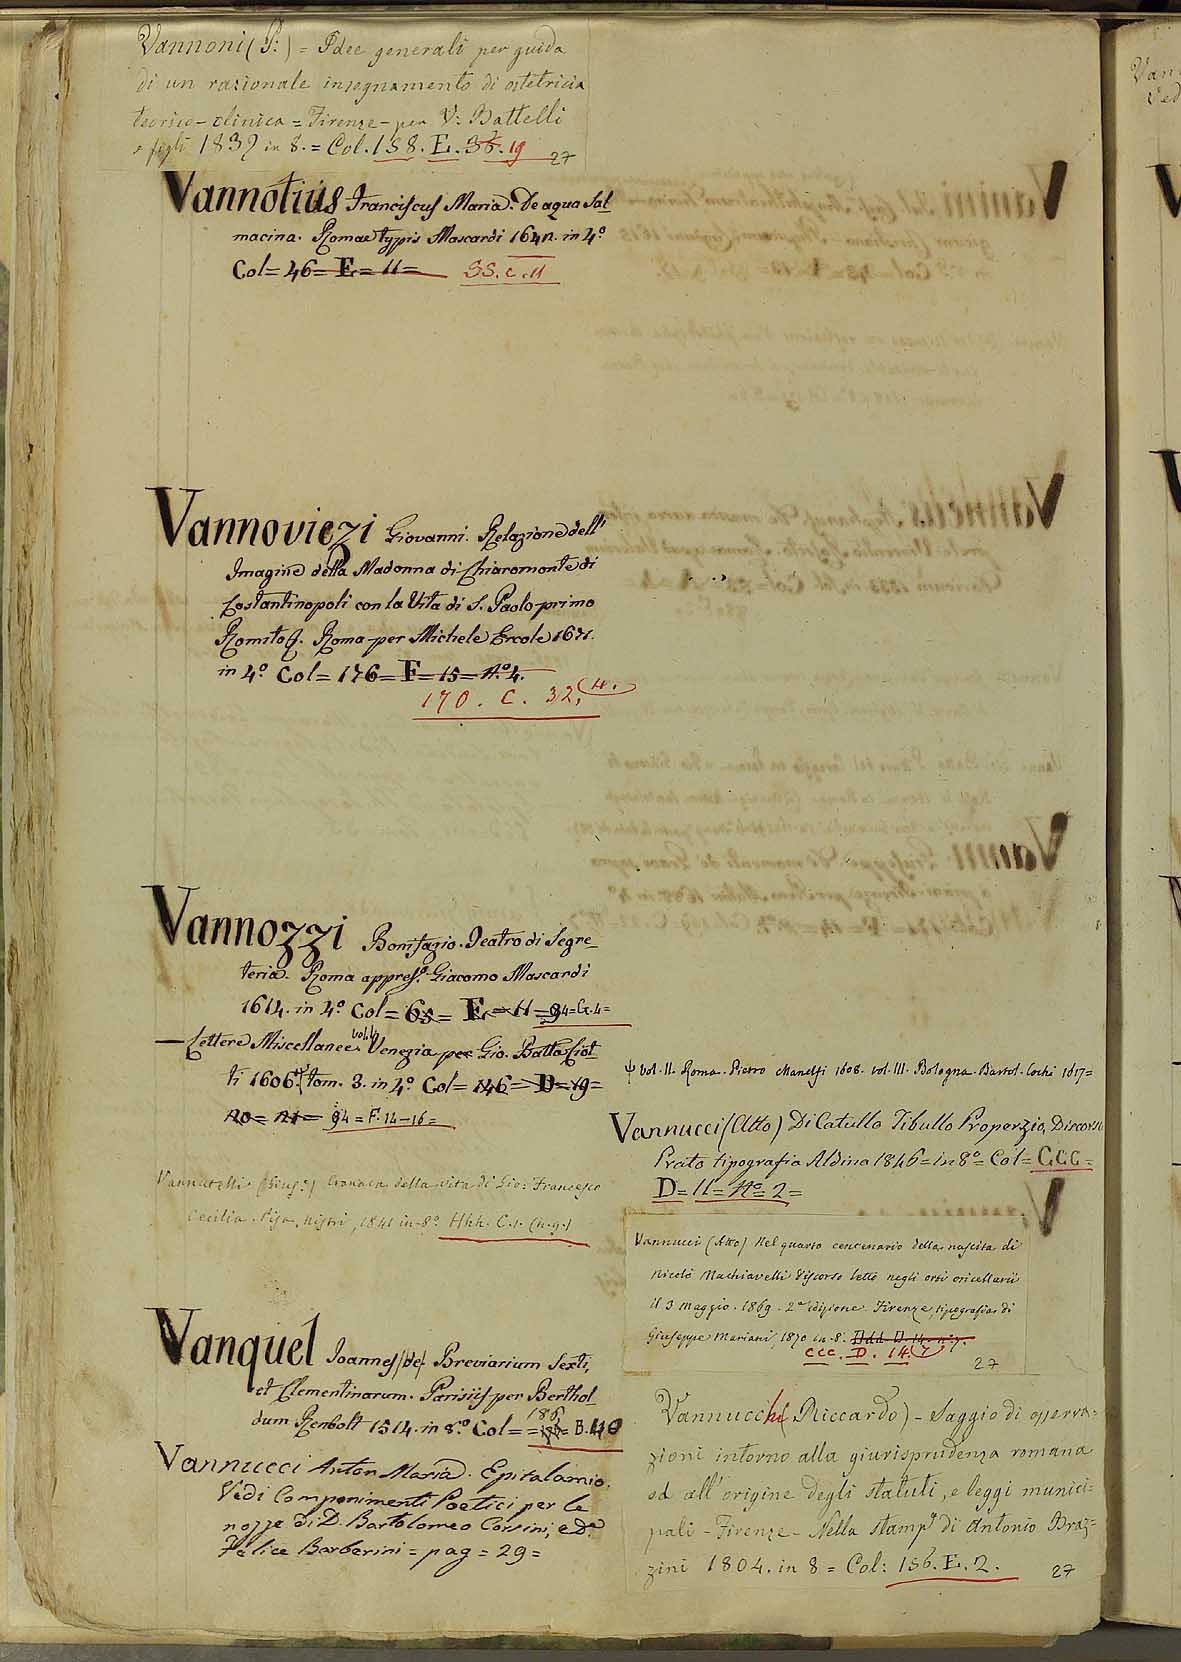 Vannoni (P:) = Idee generali per guida
di un razionale insegnamento di ostetricia
teorico-clinica = Firenze - per V: Battelli
e figli 1839 in 8. = Col. 158. E. 19
27
Vannotius Franciscus Maria. De aqua Sal
macina. Romae typis Mascardi in 4.º
Col = 46 = E = 11 = SS. C. 11
Vannoviezi Giovanni. Relazione dell'
Imagine della Madonna di Chiaromonte di
Costantinopoli con la Vita di S. Paolo primo
Romito. Roma per Michele Ercole 1671.
in 4.º Col = 176 = F = 15 = Nº 4.
170. C. 32, (4.)
Vannozzi Bonifazio. Teatro di Segre_
teria. Roma appres.º Giacomo Mascardi
1614. in 4.º Col = 65 = E = 11 = 94 = G. 4 =
— Lettere Miscellanee. vol. I. Venezia per Gio. Batta Ciot
ti 1606. ψ tom. 3. in 4.º Col = 146 = D = 19 =
20 = 21 = 94 = F. 14-16 =
Vannutelli (Giusº.) Cronaca della vita di Gio: Francesco
Cecilia. Pisa, Nistri, 1841 in-8º. Hhh. C. 1. (n. 9.)
Vanquel Joannes (de) Breviarium Sexti,
et Clementinarum. Parisiis per Berthol
dum Renbolt 1514. in 8.º Col = = B. 40
Vannucci Anton Maria. Epitalamio.
Vedi Componimenti Poetici per le
nozze di D. Bartolomeo Corsini, e Dª
Felice Barberini = pag = 29 =
ψ vol. II. Roma. Pietro Manelfi 1608. vol. III. Bologna. Bartol. Cochi 1617 =
Vannucci (Atto) Di Catullo Tibullo Properzio, Discorsi
Prato tipografia Aldina 1846 = in 8º = Col = CCC =
D = 11 = Nº = 2 =
Vannucci (Atto) Nel quarto centenario della nascita di
Nicolò Machiavelli Discorso letto negli orti oricellarii
il 3 maggio. 1869. 2ª edizione. Firenze, tipografia di
Giuseppe Mariani, 1870 in-8º. Ddd. D. 14. nº 7.
CCC. D. 14. (7)
27
Vannucchi Riccardo) - Saggio di osserva=
zioni intorno alla giurisprudenza romana
ed all'origine degli statuti, e leggi munici=
pali - Firenze - Nella stampª di Antonio Braz=
zini 1804. in 8 = Col: 156. E. 2.
27